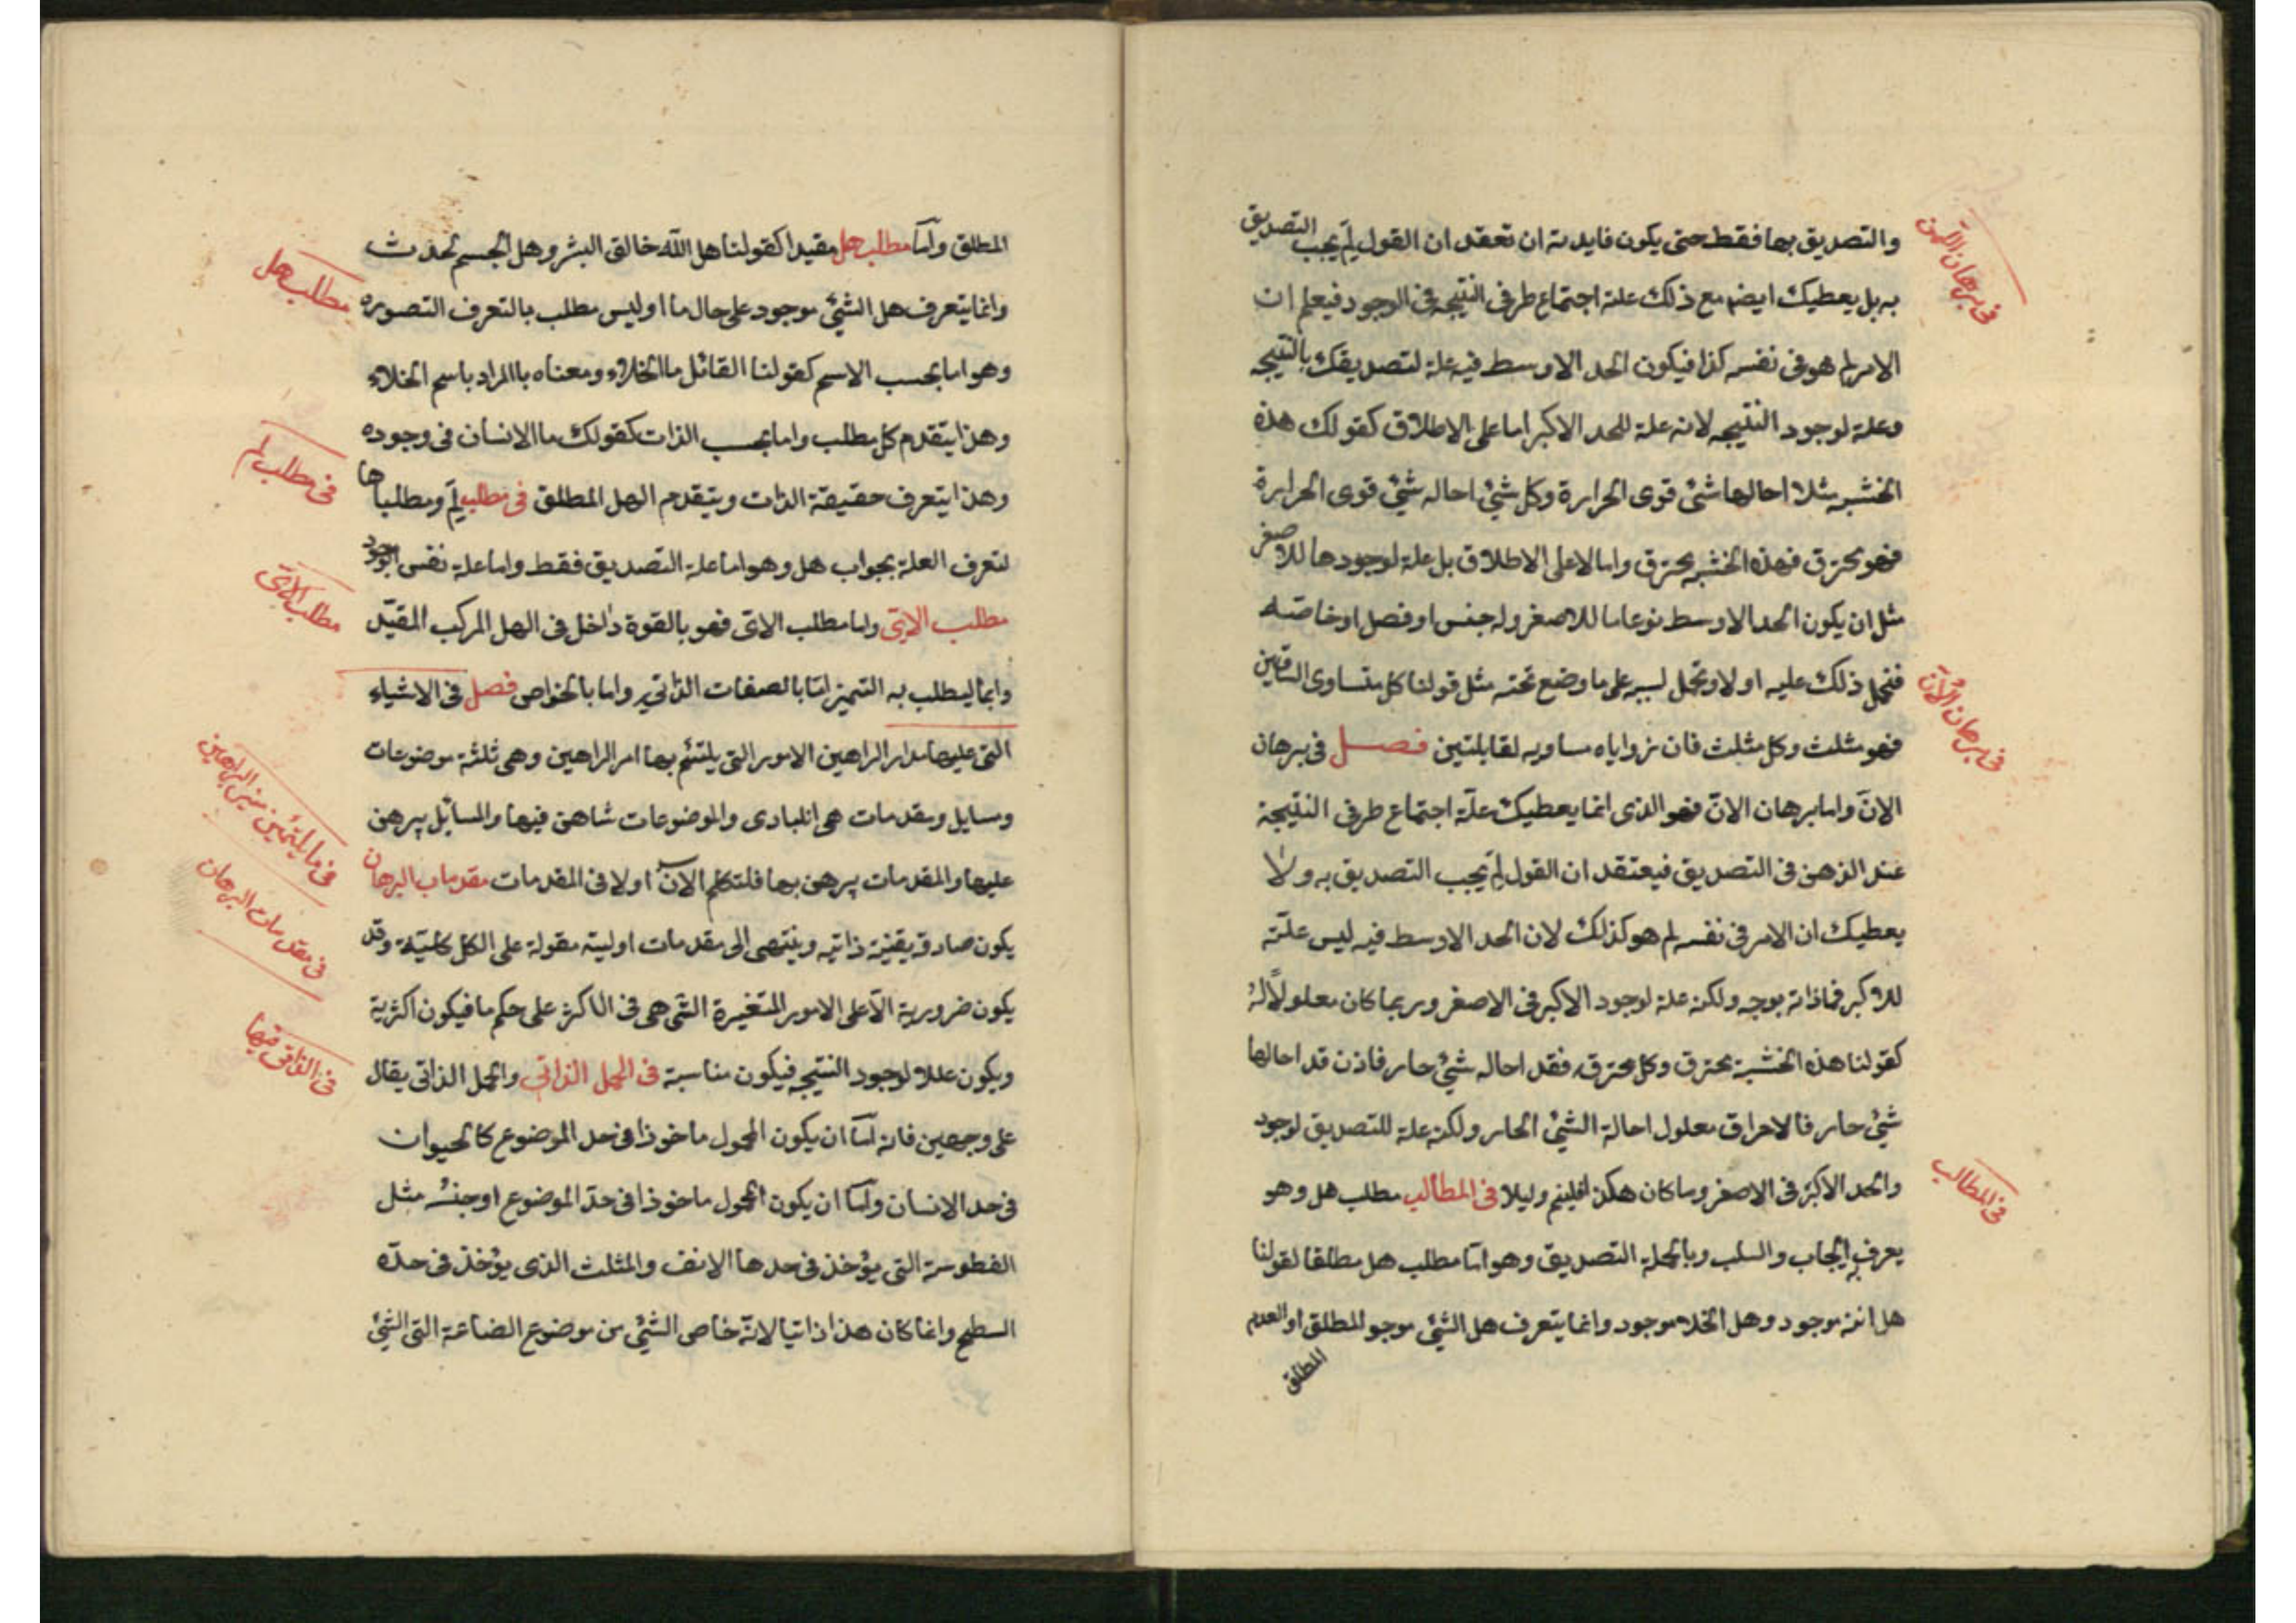 والتصديق بها فقط حتى يكون فايدته ان تعقد ان القول لِمَ يجب التصديق
به بل يعطيك ايضا مع ذلك علة اجتماع طرفى النتيجة فى الوجود فيعلم ان
الامر لم هو فى نفسه كذا فيكون الحد الاوسط فيه علة لتصديقك بالنتيجه
وعلة لوجود النتيجه لانه علة للحد الاكبر اما على الاطلاق كقولك هذه
الخشبه مثلا احالها شئ قوى الحرارة وكل شئ احاله شئ قوى الحرارة
فهو محترق فهذه الخشبه محترق واما لا على الاطلاق بل علة لوجودها للاصغر
مثل ان يكون الحد الاوسط نوعا ما للاصغر وله جنس او فصل او خاصته
فتحمل ذلك عليه اولا وتحمل لسببه على ما وضع تحته مثل قولنا كل متساوى الساقين
فهو مثلث وكل مثلث فان زواياه مساويه لقابلتين فصل فى برهان
الانّ واما برهان الانّ فهو الذى انما يعطيك علّة اجتماع طرفى النتيجة
عند الذهن فى التصديق فيعتقد ان القول لِمَ يجب التصديق به ولا
يعطيك ان الامر فى نفسه لم هو كذلك لان الحد الاوسط فيه ليس علّته
للاكبر فى ذاته بوجه ولكنه علة لوجود الاكبر فى الاصغر وربما كان معلولاً لهُ
كقولنا هذه الخشبة محترق وكل محترق فقد احاله شئ حار فاذن قد احالها
شئ حار فالاحراق معلول احالة الشئ الحار ولكنه علة للتصديق لوجود
والحد الاكبر فى الاصغر وما كان هكذا وليلا فى المطالب مطلب هل وهو
يعرف ايجاب والسلب وبالجملة التصديق وهو امّا مطلب هل مطلقا لقولنا
هل انه موجود وهل الخلاء موجود وانما يتعرف هل الشئ موجو المطلق او العدم
المطلق
فى برهان اللمّ
فى برهان الانّ
فى المطالب
المطلق وامّا مطلب هل مقيدا كقولنا هل اللّه خالق البشر وهل الجسم محدث
وانما يتعرف هل الشئ موجود على حال ما او ليس مطلب بالتعرف التصوره
وهو اما بحسب الاسم كقولنا القائل ما الخلاء ومعناه باالمراد باسم الخلاء
وهذا يتقدم كل مطلب واما بحسب الذات كقولك ما الانسان فى وجوده
وهذا يتعرف حقيقة الذات ويتقدم الهل المطلق فى مطلب لِمَ ومطلباها
لتعرف العلة بجواب هل وهو اما علة التصديق فقط واما علة نفس الوجود
مطلب الاىّ واما مطلب الاى فهو بالقوة داخل فى الهل المركب المقيّد
وانما ليطلب به التميز امّا بالصفات الذاتيه واما بالخواص فصل فى الاشياء
التى عليها مدار البراهين الامور التى يلتئم بها امر البراهين وهى ثلثة موضوعات
ومسايل ومقدمات هى المبادى والموضوعات شاهن فيها والمسائل يبرهن
عليها والمقدمات يبرهن بها فلنتكلم الآن اولا فى المقدمات مقدمات البرهان
يكون صادقة يقينة ذاتيه وينتهى الى مقدمات اولية مقولة على الكل كلية وقد
يكون ضرورية الّا على الامور المتغيرة التى هى فى الاكثر على حكم ما فيكون اكثرية
ويكون عللا لوجود النتيجه فيكون مناسبة فى الحمل الذاتى والحمل الذاتى يقال
على وجهين فانه امّا ان يكون المحمول ماخوذا فى حد الموضوع كالحيوان
فى حد الانسان وامّا ان يكون المحمول ماخوذا فى حدّ الموضوع او جنسه مثل
الفطوسة التى يؤخذ فى حدها الانف والمثلث الذى يؤخذ فى حدّه
السطح وانما كان هذا ذاتيا لانّه خاص الشئ من موضوع الضاعة التى الشئ
مطلب هل
فى مطلب لم
مطلب الاىّ
فى ما يلتئمن منه البراهين
فى مقدمات البرهان
فى الذاتى فيها